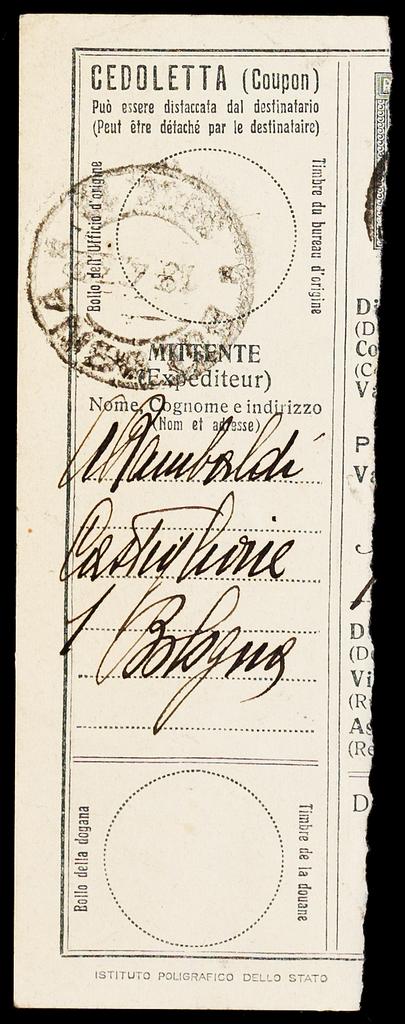 CEDOLETTA (Coupon)
Può essere distaccata dal destinatario
(Peut être détaché par le destinataire)
Bollo dell'Ufficio d'origine
Timbre du bureau d'origine
MITTENTE
(Expéditeur)
Nome, Cognome e indirizzo
(Nom et adresse)
Rambaldi
Castiglione
1 Bologna
Bollo della dogana
Timbre de la douane
ISTITUTO POLIGRAFICO DELLO STATO